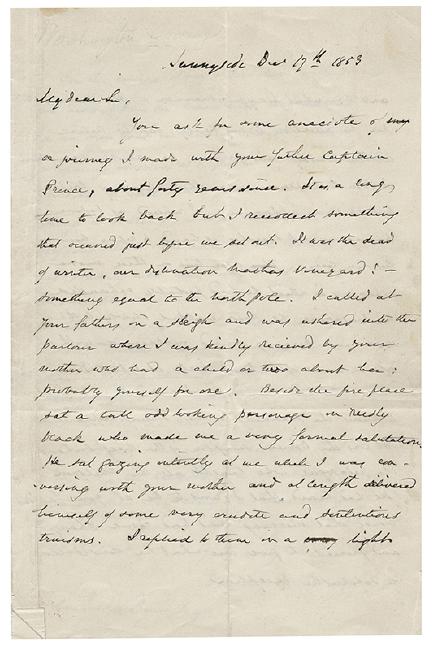 Sunnyside Dec 17th 1853
My dear Sir,
You ask for some anecdote of my
or journey I made with your father Captain
Prince, about forty years since. It is a long
time to look back but I recollect something
that occurred just before we set out. It was the dead
of winter, our destination Marthas Vineyard! —
something equal to the north pole. I called at
your fathers in a sleigh and was ushered into the
parlour where I was kindly recieved by your
mother who had a child or two about her;
probably yourself for one. Beside the fire place
sat a tall odd looking personage in
black who made me a very formal salutation.
He sat gazing intently at me while I was con-
versing with your mother and at length delivered
himself of some very erudite and sententious
truisms. I replied to them in a light